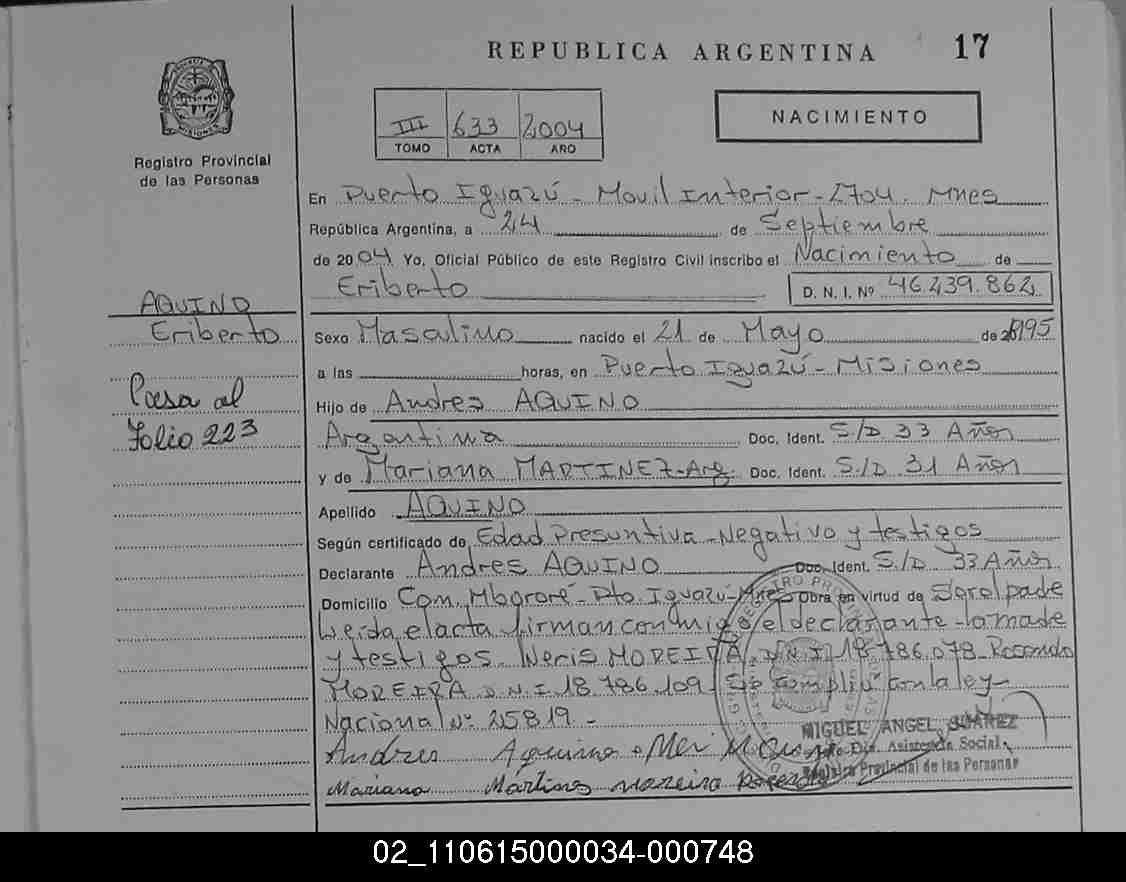 REPUBLICA ARGENTINA 17
III 633 2004
TOMO ACTA AÑO
NACIMIENTO
Registro Provincial
de las Personas
En Puerto Iguazú - Movil Interior - 2704. Mnes
República Argentina, a 24 de Septiembre
de 2004 Yo, Oficial Público de este Registro Civil inscribo el Nacimiento de
Eriberto D. N. I. Nº 46.239.862
AQUINO
Eriberto
Pasa al
Folio 223
Sexo Masculino nacido el 21 de Mayo de 1995
a las horas, en Puerto Iguazú - Misiones
Hijo de Andres AQUINO
Argentina Doc. Ident. S/D 33 Años
y de Mariana MARTINEZ-Arg. Doc. Ident. S/D 31 Años
Apellido AQUINO
Según certificado de Edad Presuntiva - Negativo y testigos
Declarante Andres AQUINO Doc. Ident. S/D 33 Años
Domicilio Com. Mbororé - Pto. Iguazú - Mnes Obra en virtud de Ser el padre
Leída el acta firman conmigo el declarante - la madre
y testigos. Neris MOREIRA D.N.I 18.786.078 - Rosendo
MOREIRA D.N.I 18.786.109 - Se cumplió con la ley
Nacional Nº 25819 -
Andres Aquino
Mariana Martines moreira
MIGUEL ANGEL SUAREZ
Asistencia Social
Registro Provincial de las Personas
02_110615000034-000748